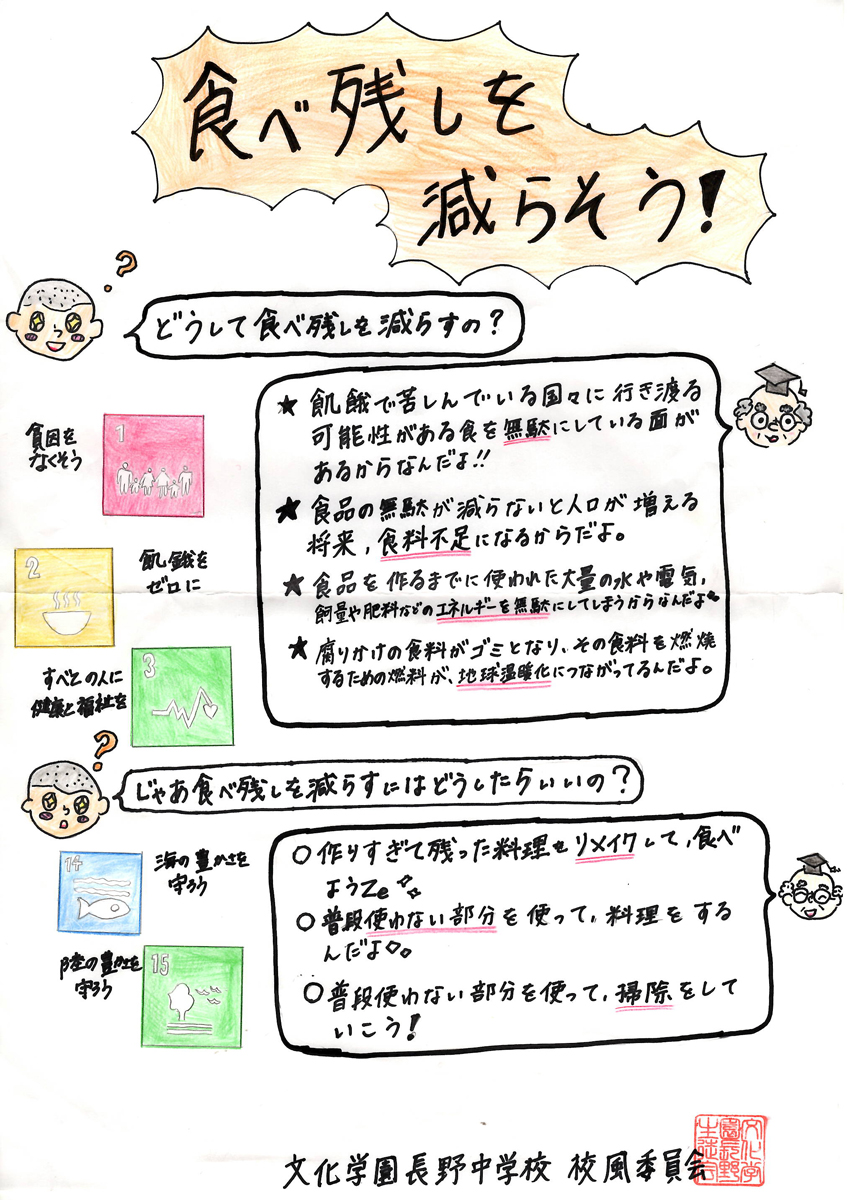 食べ残しを
減らそう!
?
どうして食べ残しを減らすの?
★飢餓で苦しんでいる国々に行き渡る
可能性がある食を無駄にしている面が
あるからなんだよ!!
★食品の無駄が減らないと人口が増える
将来,食料不足になるからだよ。
★食品を作るまでに使われた大量の水や電気,
飼量や肥料などのエネルギーを無駄にしてしまうからなんだよ
★腐りかけの食料がゴミとなり、その食料を燃焼
するための燃料が、地球温暖化につながってるんだよ。
貧困を
なくそう
1
2
飢餓を
ゼロに
すべての人に
健康と福祉を
3
?
じゃあ食べ残しを減らすにはどうしたらいいの?
○作りすぎて残った料理をリメイクして,食べ
ようZe
○普段使わない部分を使って,料理をする
んだよ。
○普段使わない部分を使って,掃除をして
いこう!
14
海の豊かさを
守ろう
陸の豊かさを
守ろう
15
文化学園長野中学校 校風委員会
文化学
園長野
生徒会